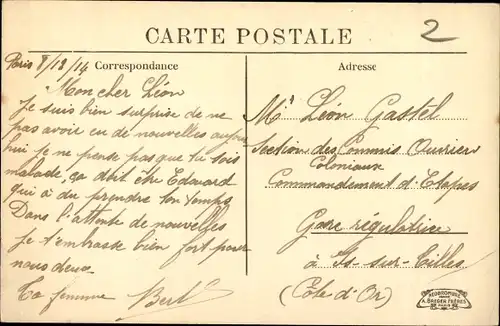 CARTE POSTALE
2
Correspondance
Adresse
Paris 8/12/14
Mon cher Léon
Je suis bien surprise de ne
pas avoir eu de nouvelles aujour
hui je ne pense pas que tu sois
malade, ça doit être Edouard
qui a du prendre ton temps
Dans l'attente de nouvelles
Je t'embrasse bien fort pour
nous deux.
Ta femme Berthe
Mr Léon Gastel
Section des Commis Ouvriers
Coloniaux
Commandement d'Etapes
Gare régulatrice
à Is-sur-Tilles
(Côte d'Or)
A. BREGER FRÈRES
PARIS